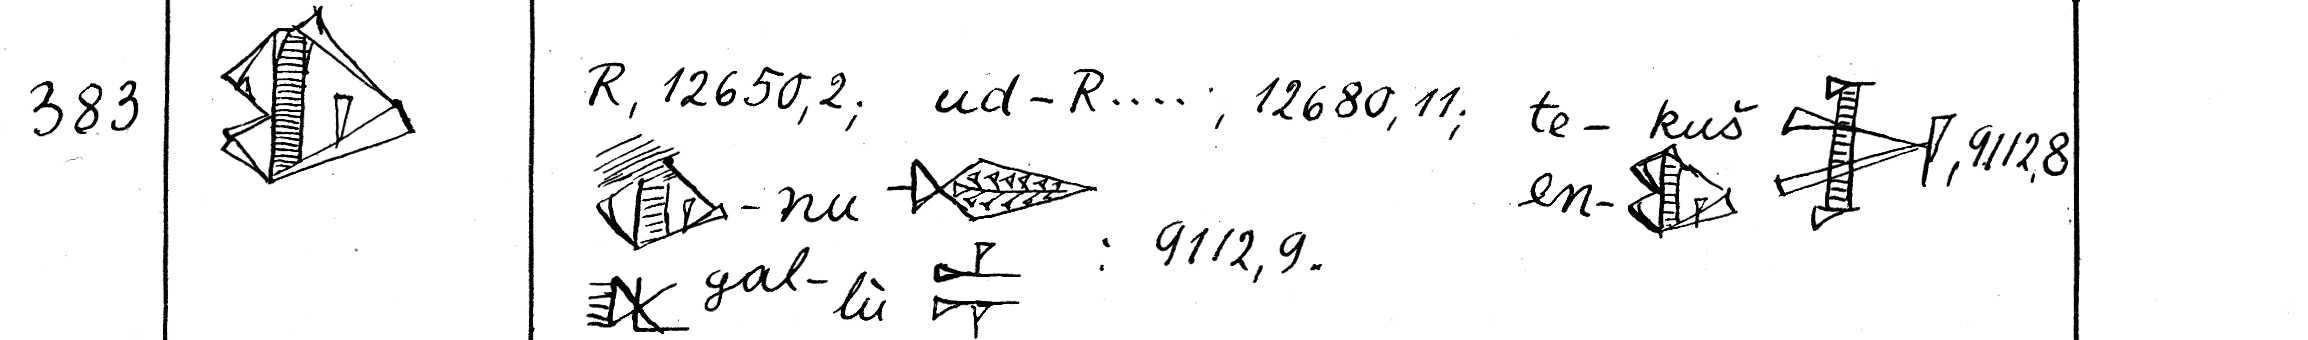 383 R, 12650,2; ud-R....; 12680,11; te-kuš , 9112,8
-nu en-
gal-lù : 9112,9.